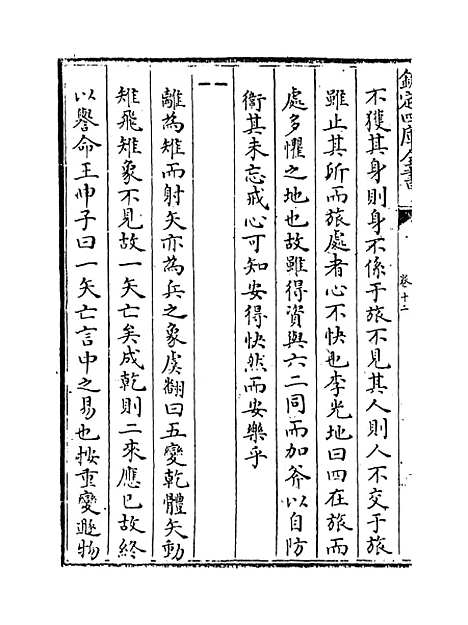 欽定四庫全書
卷十二
不獲其身則身不係于旅不見其人則人不交于旅
雖止其所而旅處者心不快也李光地曰四在旅而
處多懼之地也故雖得資與六二同而加斧以自防
衛其未忘戒心可知安得快然而安樂乎
離為雉而射矢亦為兵之象虞翻曰五變乾體矢動
雉飛雉象不見故一矢亡矣成乾則二來應已故終
以譽命王巾子曰一矢亡言中之易也按重變遯物